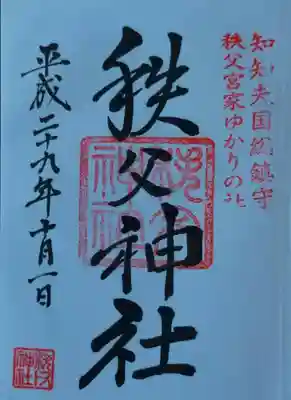 知知夫国総鎮守
秩父宮家ゆかりの社
秩父神社
平成二十九年十月一日
秩父神社